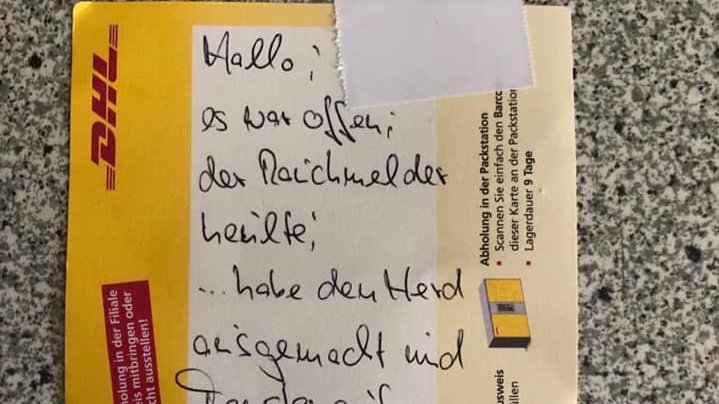 DHL
Hallo;
es war offen;
der Raichmelder
heilte;
...habe den Herd
ausgemacht und
Abholung in der Packstation
Scannen Sie einfach den Barcc
dieser Karte an der Packstation
Lagerdauer 9 Tage
holung in der Filiale
is mitbringen oder
cht ausstellen!
usweis
üllen